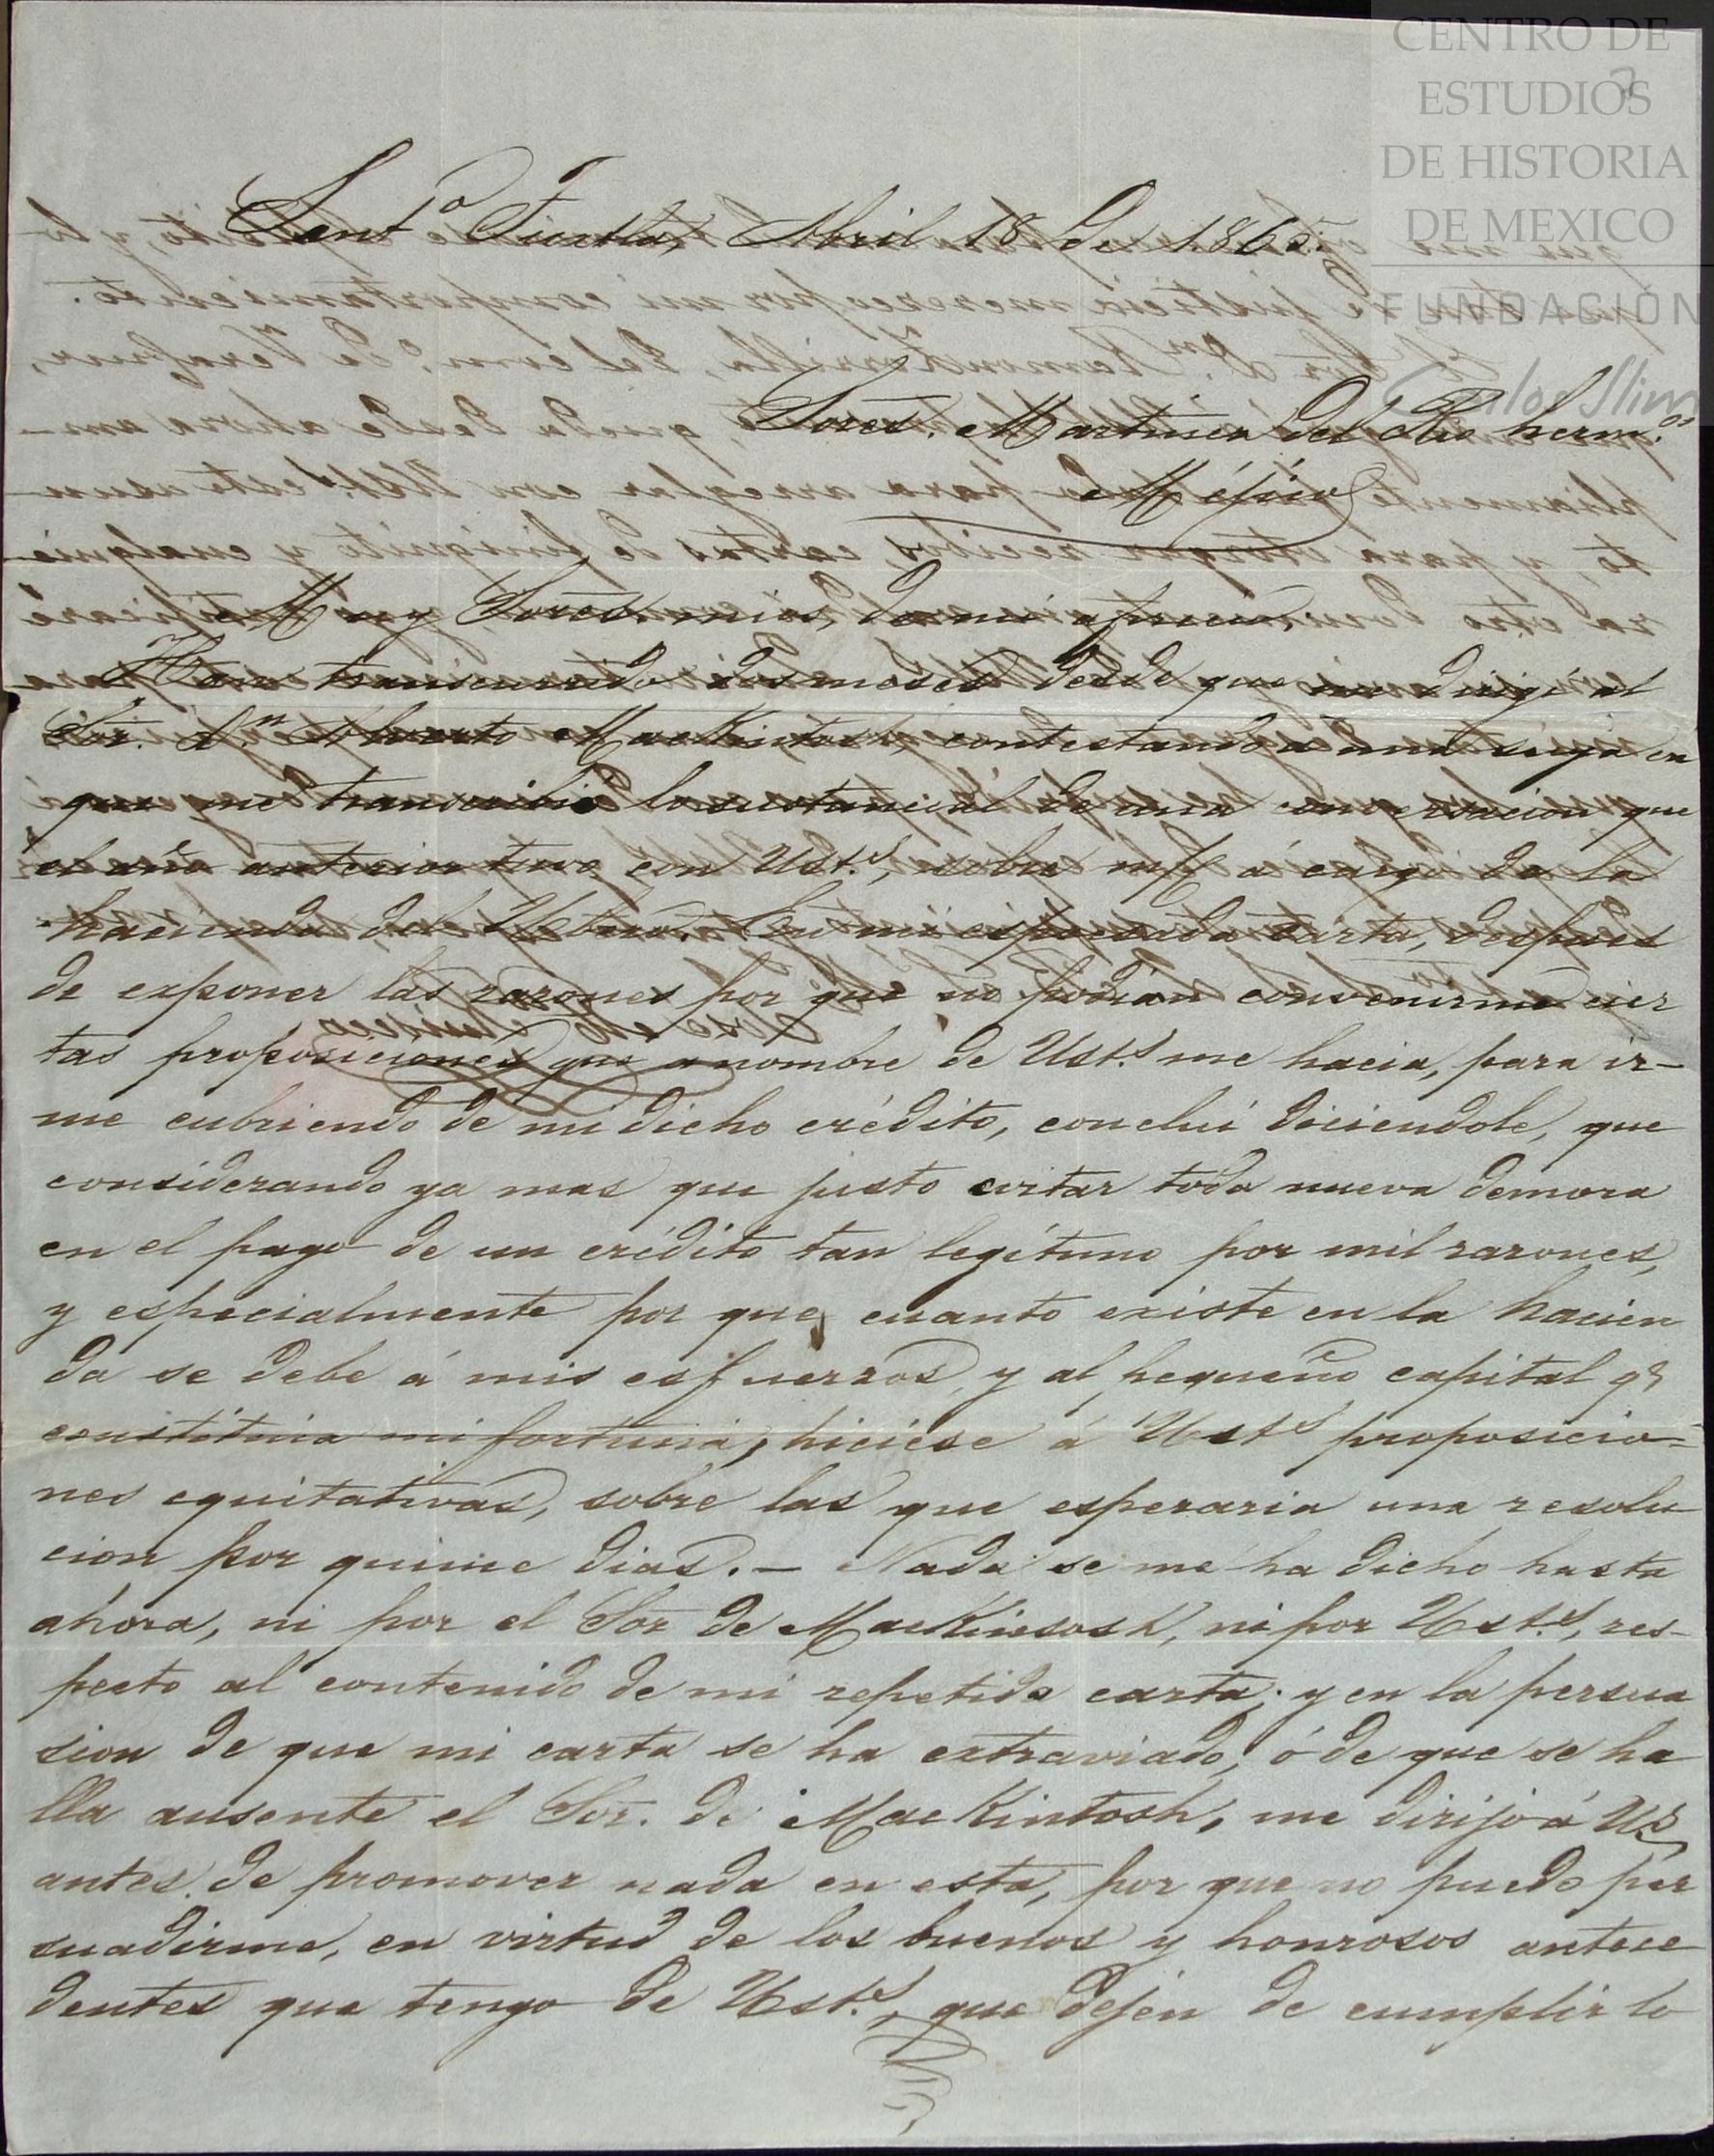 CENTRO DE
ESTUDIOS
DE HISTORIA
DE MEXICO
FUNDACIÓN
Carlos Slim
2
Sant.º Tuxtla, Abril 18 de 1865.
Sores. Martinez del Rio herm.os
Méjico
Muy Sores. mios, de mi aprecio.
Han transcurrido dos meses desde que me dirigí al
Sor. Dn. Alberto MacKintosh, contestando á una suya en
que me transcribió lo sustancial de una conversacion que
el año anterior tuvo con Ust.s, sobre m/c á cargo de la
hacienda del . En mi espresada carta, despues
de exponer las razones por que no podian convenirme cier
tas proposiciones que á nombre de Ust.s me hacia, para ir-
me cubriendo de mi dicho crédito, concluí diciendole, que
considerando ya mas que justo evitar toda nueva demora
en el pago de un crédito tan legítimo por mil razones,
y especialmente por que, cuanto existe en la hacien
da se debe á mis esfuerzos, y al pequeño capital q.e
constituia mi fortuna, hiciese á Ust.s proposicio-
nes equitativas, sobre las que esperaria una resolu
cion por quince dias.— Nada se me ha dicho hasta
ahora, ni por el Sor de MacKinsosh, ni por Ust.s, res-
pecto al contenido de mi repetida carta; y en la persua
sion de que mi carta se ha extraviado, ó de que se ha
lla ausente el Sor. de MacKintosh, me dirijo á Us
antes de promover nada en esta, por que no puedo per
suadirme, en virtud de los buenos y honrosos antece
dentes que tengo de Ust.s, que dejen de cumplir lo